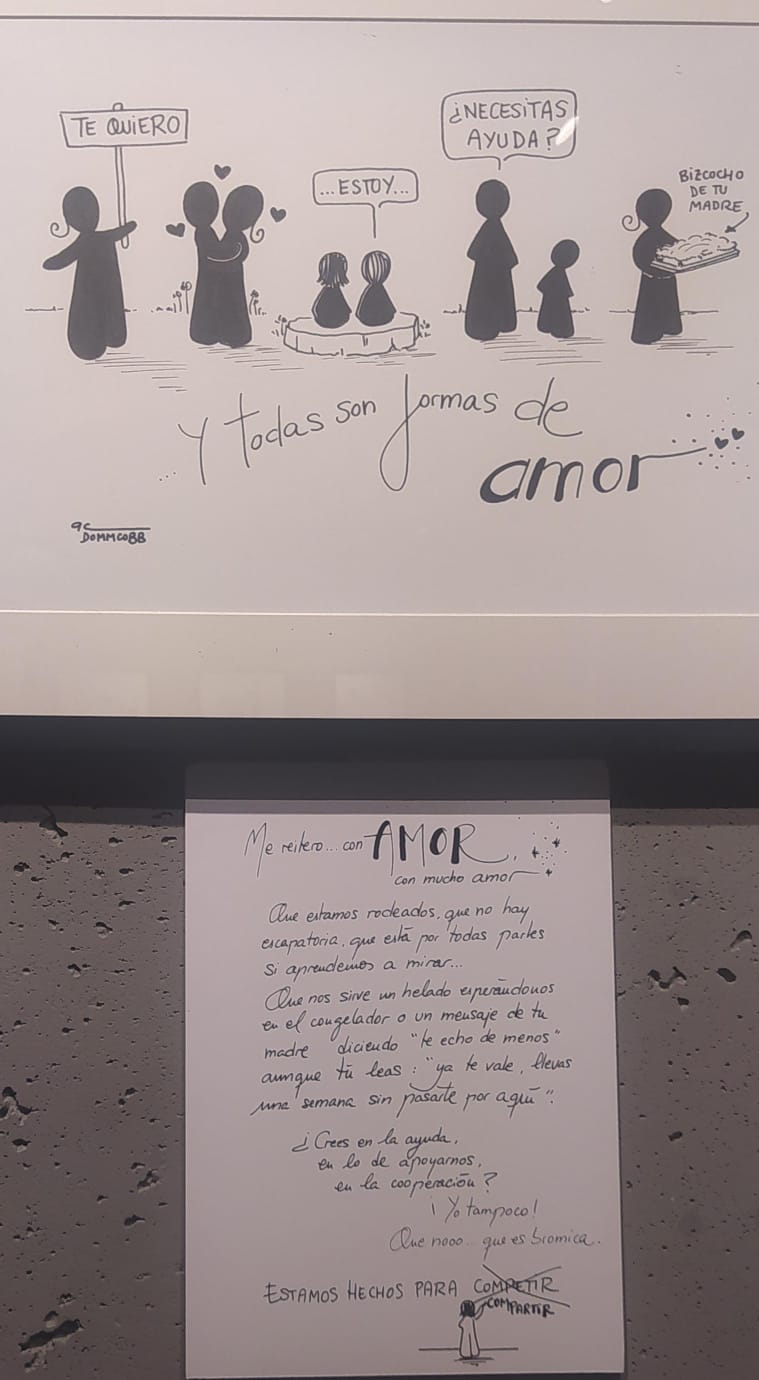 TE QUIERO
...ESTOY...
¿NECESITAS
AYUDA?
BIZCOCHO
DE TU
MADRE
...Y todas son formas de
amor
DOMMCOBB
Me reitero... con AMOR,
con mucho amor
Que estamos rodeados, que no hay
escapatoria, que está por todas partes
si aprendemos a mirar...
Que nos sirve un helado esperándonos
en el congelador o un mensaje de tu
madre diciendo "te echo de menos"
aunque tú leas: "ya te vale, llevas
una semana sin pasarte por aquí".
¿Crees en la ayuda,
en lo de apoyarnos,
en la cooperación?
¡Yo tampoco!
Que nooo... que es bromica.
ESTAMOS HECHOS PARA COMPETIR
COMPARTIR